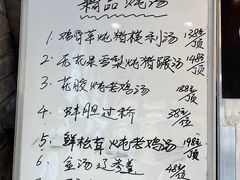 精品炖汤
1. 鸡骨草炖猪横利汤 138元/顶
2. 无花果雪梨炖猪𦟌汤 148元/顶
3. 花胶炖老鸡汤 188元/顶
4. 蚌胆过桥 38元/位
5. 鲜松茸炖老鸡汤 198元/顶
6. 金汤辽参盏 48元/位